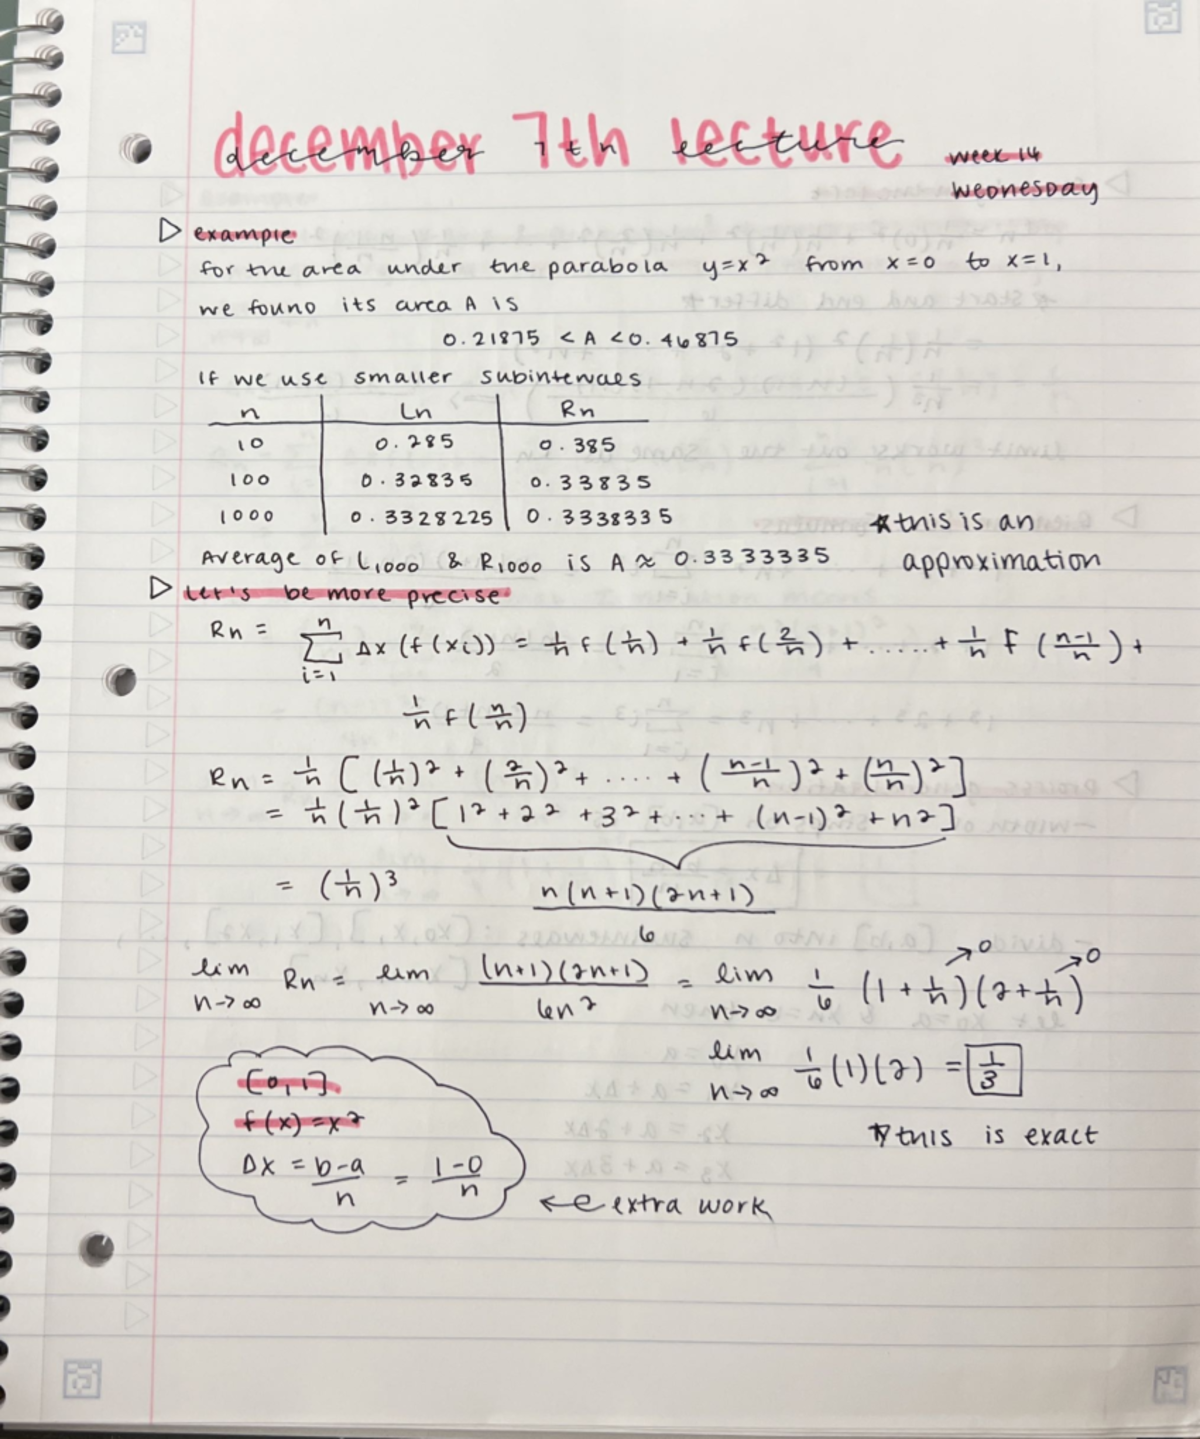 december 7th lecture
week 14
wednesday
▷ example
for the area under the parabola y=x² from x=0 to x=1,
we found its area A is
0.21875 < A < 0.46875
If we use smaller subintervals
n | Ln | Rn
10 | 0.285 | 0.385
100 | 0.32835 | 0.33835
1000 | 0.3328225 | 0.3338335
*this is an
approximation
Average of L1000 & R1000 is A ≈ 0.3333335
▷ Let's be more precise
Rn = n Σ i=1 Δx (f(xi)) = 1/n f(1/n) + 1/n f(2/n) + ..... + 1/n f(n-1/n) +
1/n f(n/n)
Rn = 1/n [(1/n)² + (2/n)² + .... + (n-1/n)² + (n/n)²]
= 1/n (1/n)² [1² + 2² + 3² + ... + (n-1)² + n²]
= (1/n)³ n(n+1)(2n+1)/6
lim n→∞ Rn = lim n→∞ (n+1)(2n+1)/6n² = lim n→∞ 1/6 (1 + 1/n)(2 + 1/n) →0 →0
lim n→∞ 1/6 (1)(2) = 1/3
*this is exact
[0,1]
f(x)=x²
Δx = b-a/n = 1-0/n
← extra work